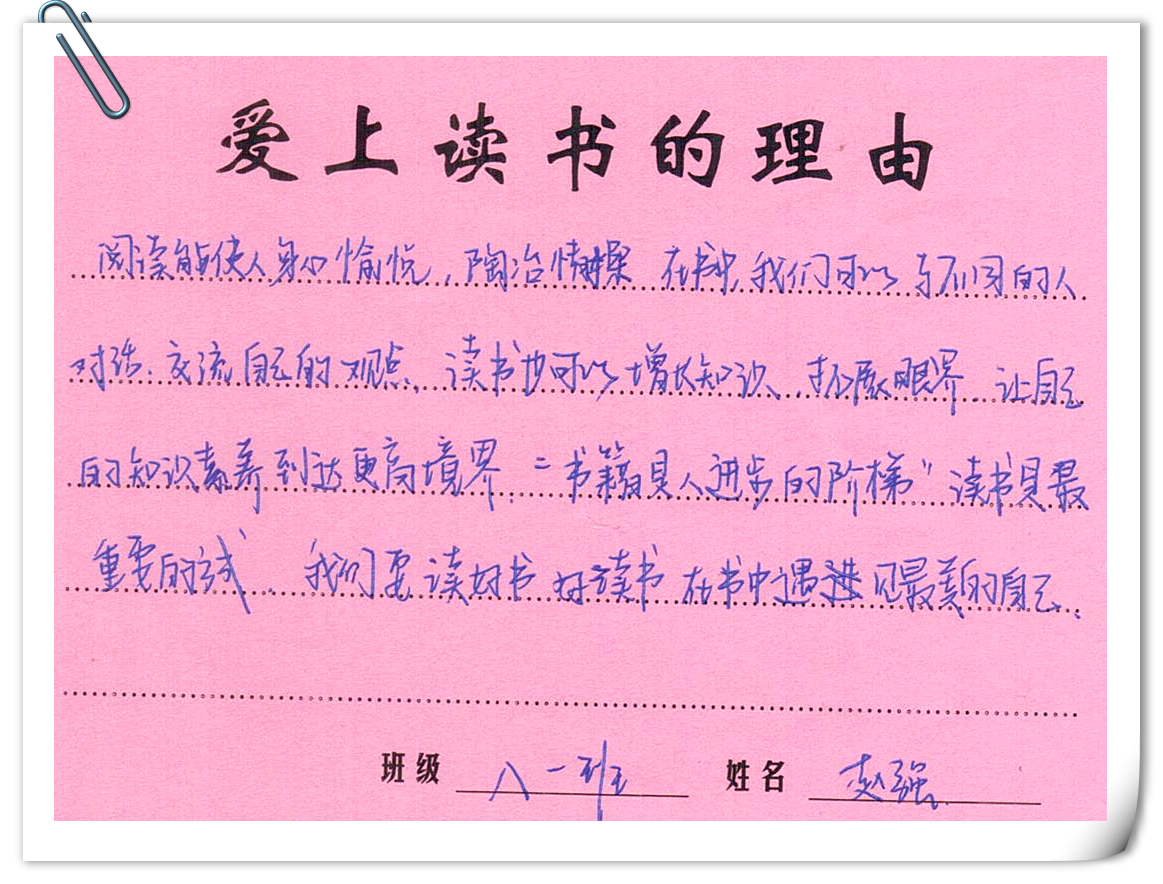 爱上读书的理由
阅读能使人身心愉悦,陶冶情操 在书中,我们可以与不同的人
对话、交流自己的观点, 读书也可以增长知识、拓展眼界 让自己
的知识素养到达更高境界."书籍是人进步的阶梯"读书是最
重要的 我们要读好书 好读书 在书中遇见最美的自己、
班级 八一班 姓名 赵强